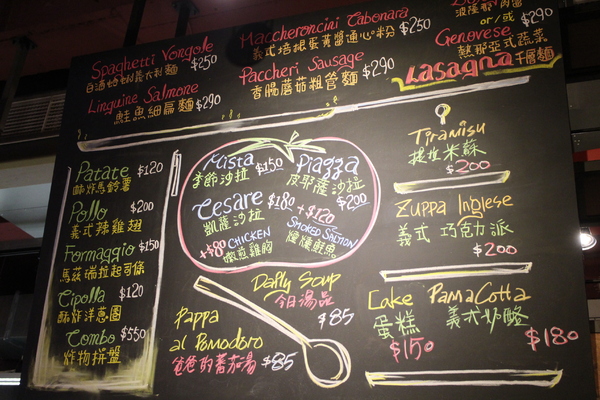 Spaghetti Vongole
白酒蛤蜊義大利麵 $250
Linguine Salmone
鮭魚細扁麵 $290
Maccheroncini Cabonara
義式培根蛋黃醬通心粉 $250
Paccheri Sausage
香腸蘑菇粗管麵 $290
or/或 $290
Genovese
熱那亞式蔬菜
Lasagna 千層麵
Patate $120
酥炸馬鈴薯
Pollo $200
義式辣雞翅
Formaggio $150
馬茲瑞拉起司條
Cipolla $120
酥炸洋蔥圈
Combo $550
炸物拼盤
Mista $150
季節沙拉
Piazza
皮耶薩沙拉 $200
Cesare $180
凱薩沙拉
+$80 CHICKEN
嫩煎雞胸
+$120
SMOKED SALMON
煙燻鮭魚
Daily Soup
今日湯品
$85
Pappa
al Pomodoro
爸爸的蕃茄湯 $85
Tiramisu
提拉米蘇
$200
Zuppa Inglese
義式 巧克力派
$200
Cake
蛋糕
$150
PanaCotta
義式奶酪
$180